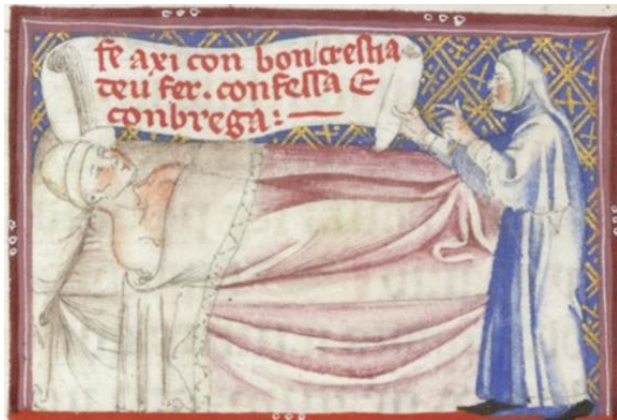 fe axi con bon crestia
deu fer. confessa e
conbrega: